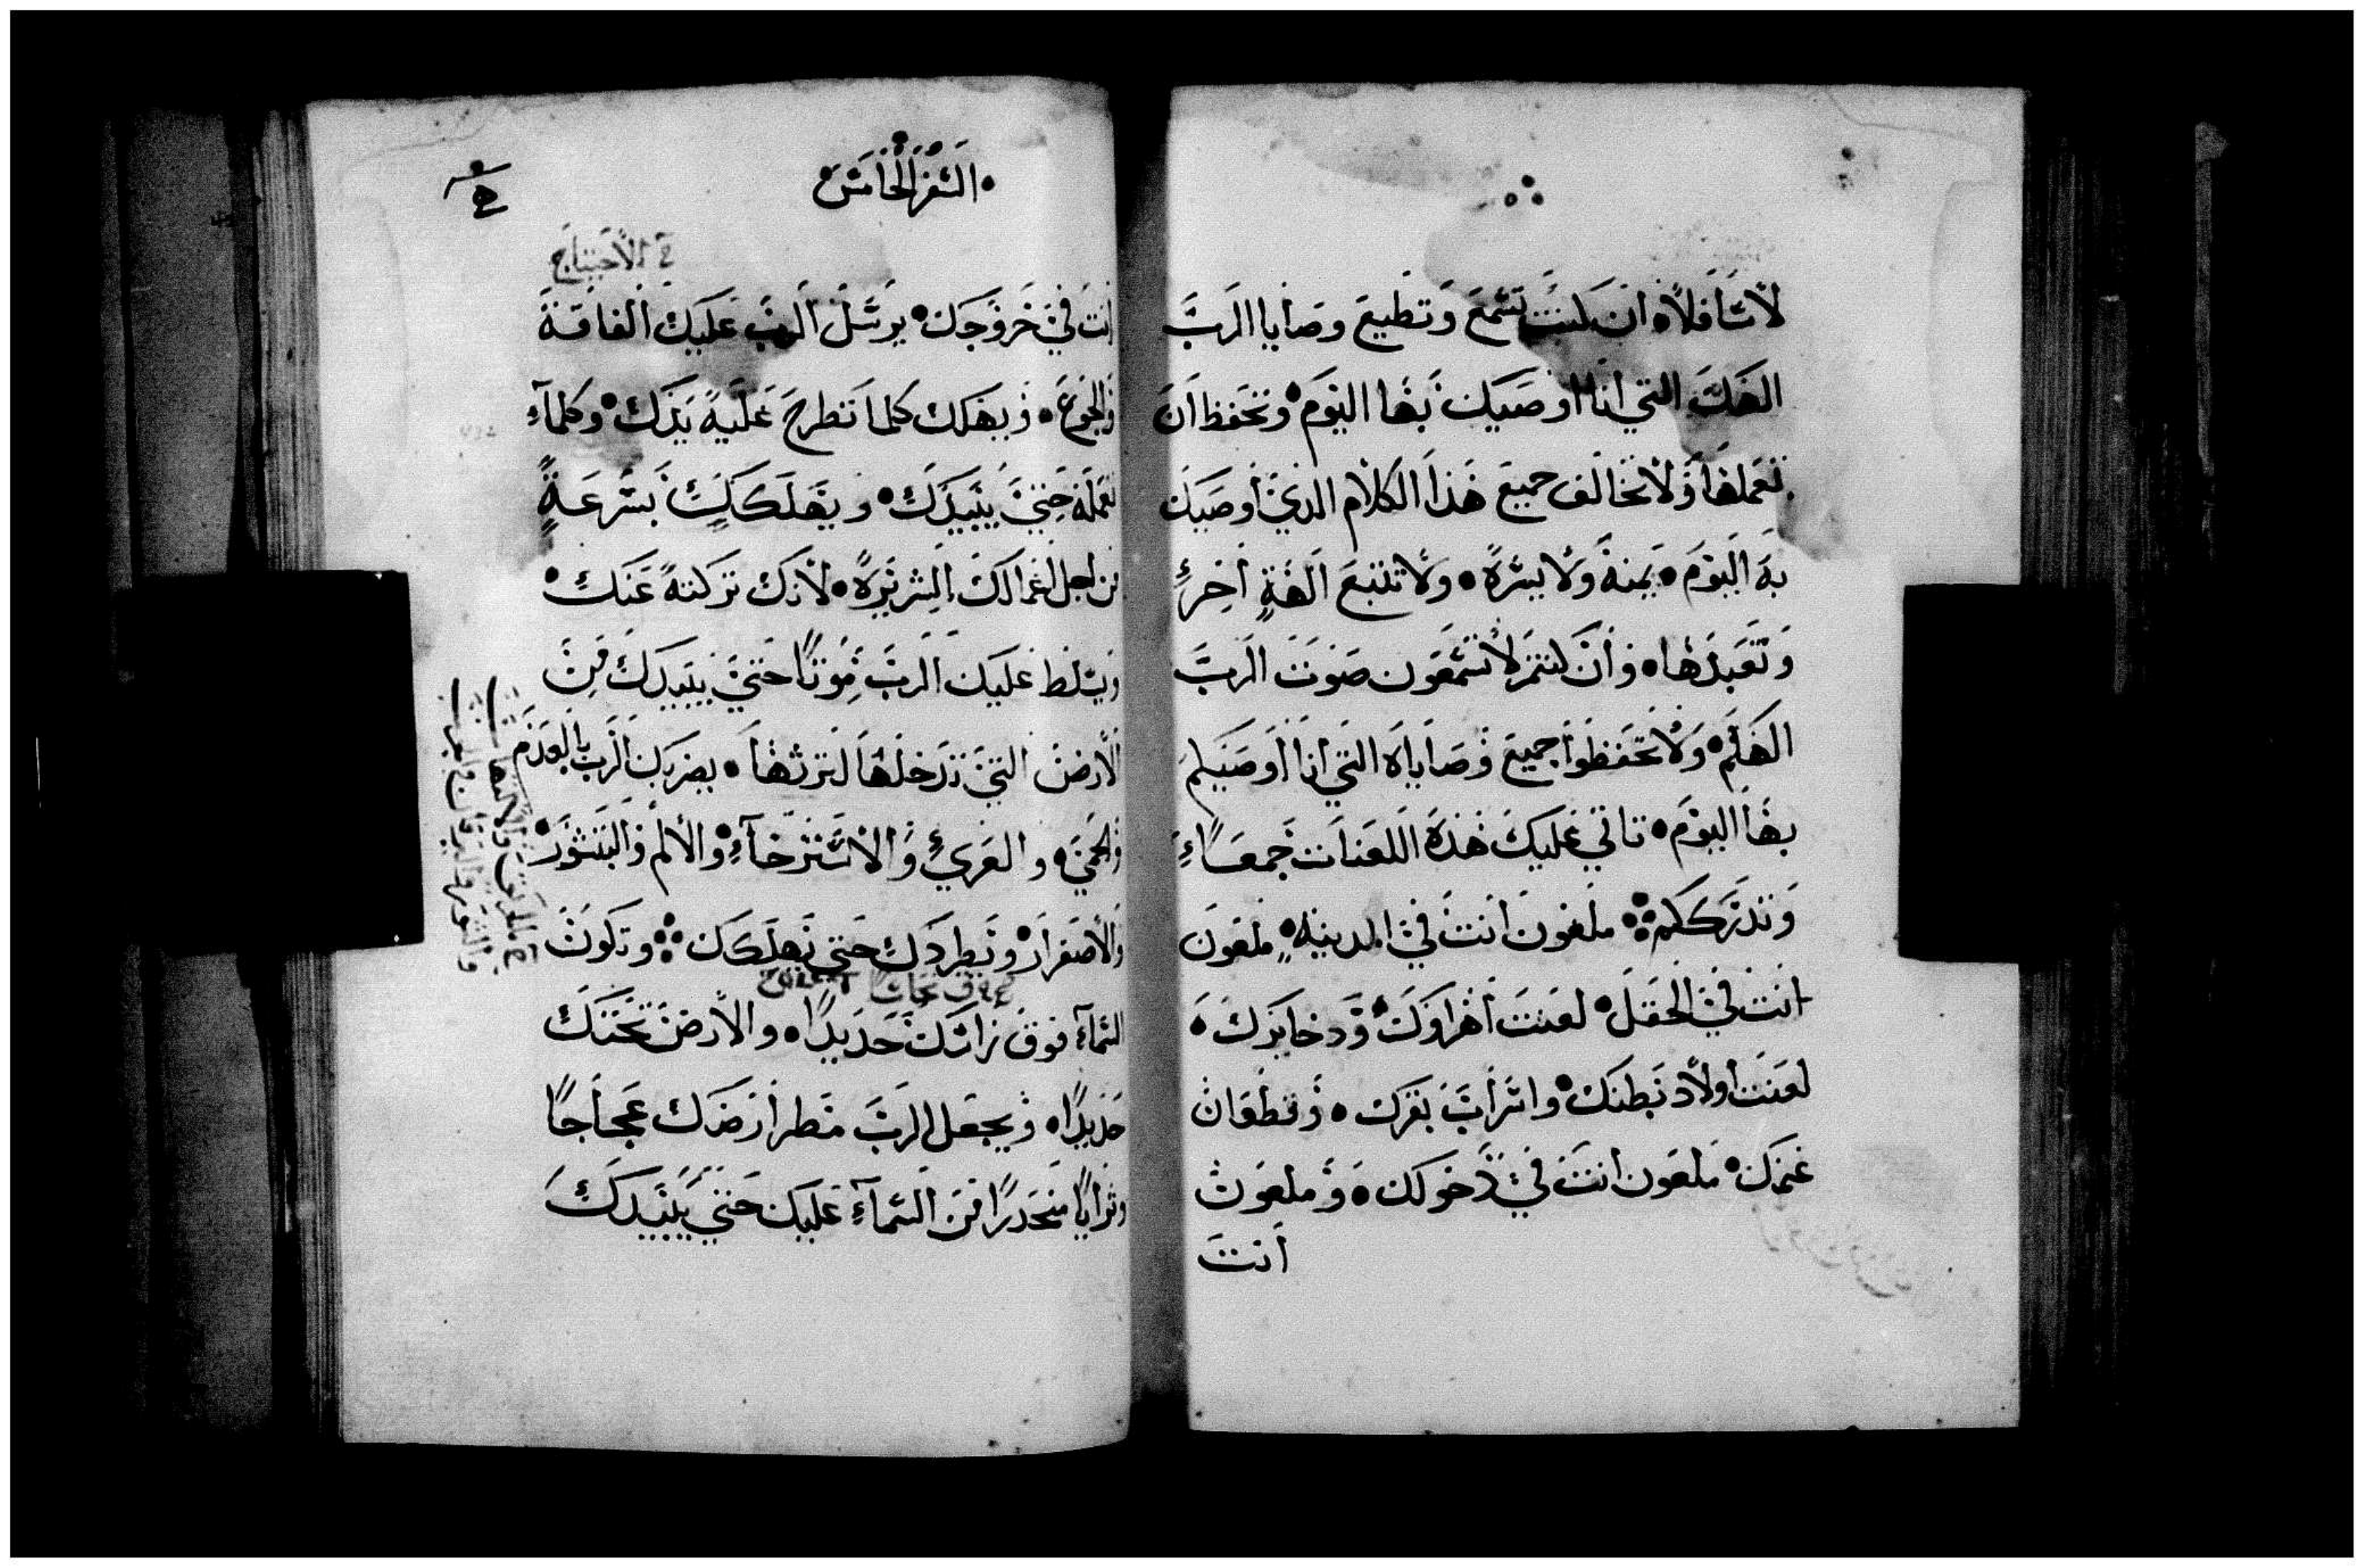 لأسافلاً، ان كنت تسمع وتطيع وصايا الرب
الهك التي انا اوصيك بها اليوم، وتحفظ ان
تعملها ولا تخالف جميع هذا الكلام الذي أوصيك
به اليوم، يمنة ولا يسرة، ولا تتبع الهةٍ اخرىٍ
وتعبدها، وأن كنتم لا تسمعون صوت الرب
الهكم، ولا تحفظوا جميع وصاياه التي انا اوصيكم
بها اليوم، تاتي عليك هذه اللعنات جمعاءً
وتدرككم ܀ ملعون انت في المدينه، ملعون
انت في الحقل، لعنت أهراوك، ودخايرك،
لعنت أولاد بطنك، واسراب بقرك، وقطعان
غنمك، ملعون انت في دخولك، وملعون
أنت
السفر الخامس
في الأحتياج
انت في خروجك، يرسل الرب عليك الفاقة
والجوع، ويهلك كلما تطرح عليه يدك، وكلما
تعمله حتي يبيدك، ويهلكك بسرعةٍ
من اجل اعمالك الشريرة، لأنك تركته عنك،
ويسلط عليك الرب موتاً حتي يبيدك من
الأرض التي تدخلها لترثها، يضربك الرب بالعدم
والحمي، والعري والاسترخاء، والألم والبثور،
والأصفرار، وتطردك حتي تهلكك ܀ وتكون
السماء فوق راسك حديداً، والأرض تحتك
حديداً، ويجعل الرب مطر أرضك عجاجاً
وتراباً منحدراً من السماء عليك حتي يبيدك